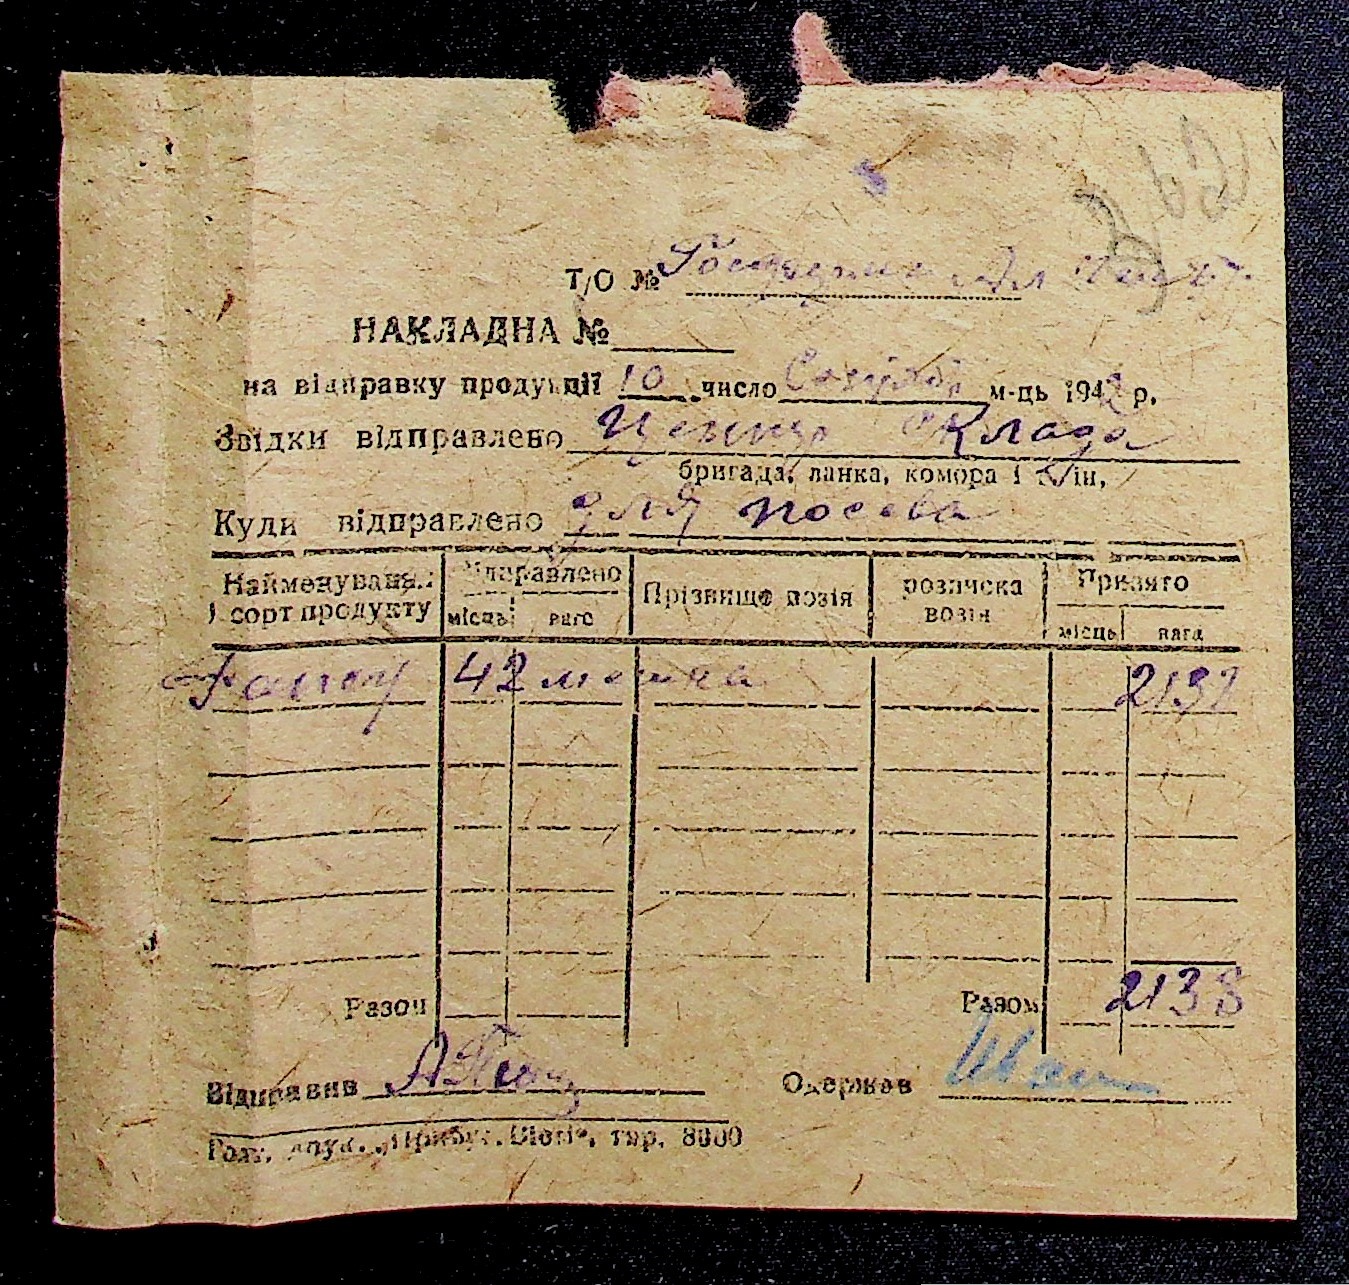 Т/О №
НАКЛАДНА №
на відправку продукції 10 число м-ць 1942 р.
Звідки відправлено Центр Склада
бригада, ланка, комора і т/ін,
Куди відправлено для посева
Найменування і сорт продукту Відправлено місць вага Прізвище возія розписка возія Прийнято місць вага
42 мешка 2138
Разом Разом 2138
Відправив Одержав Иван
Голт. друк. „Прибуг. Вісті“, тир. 8000